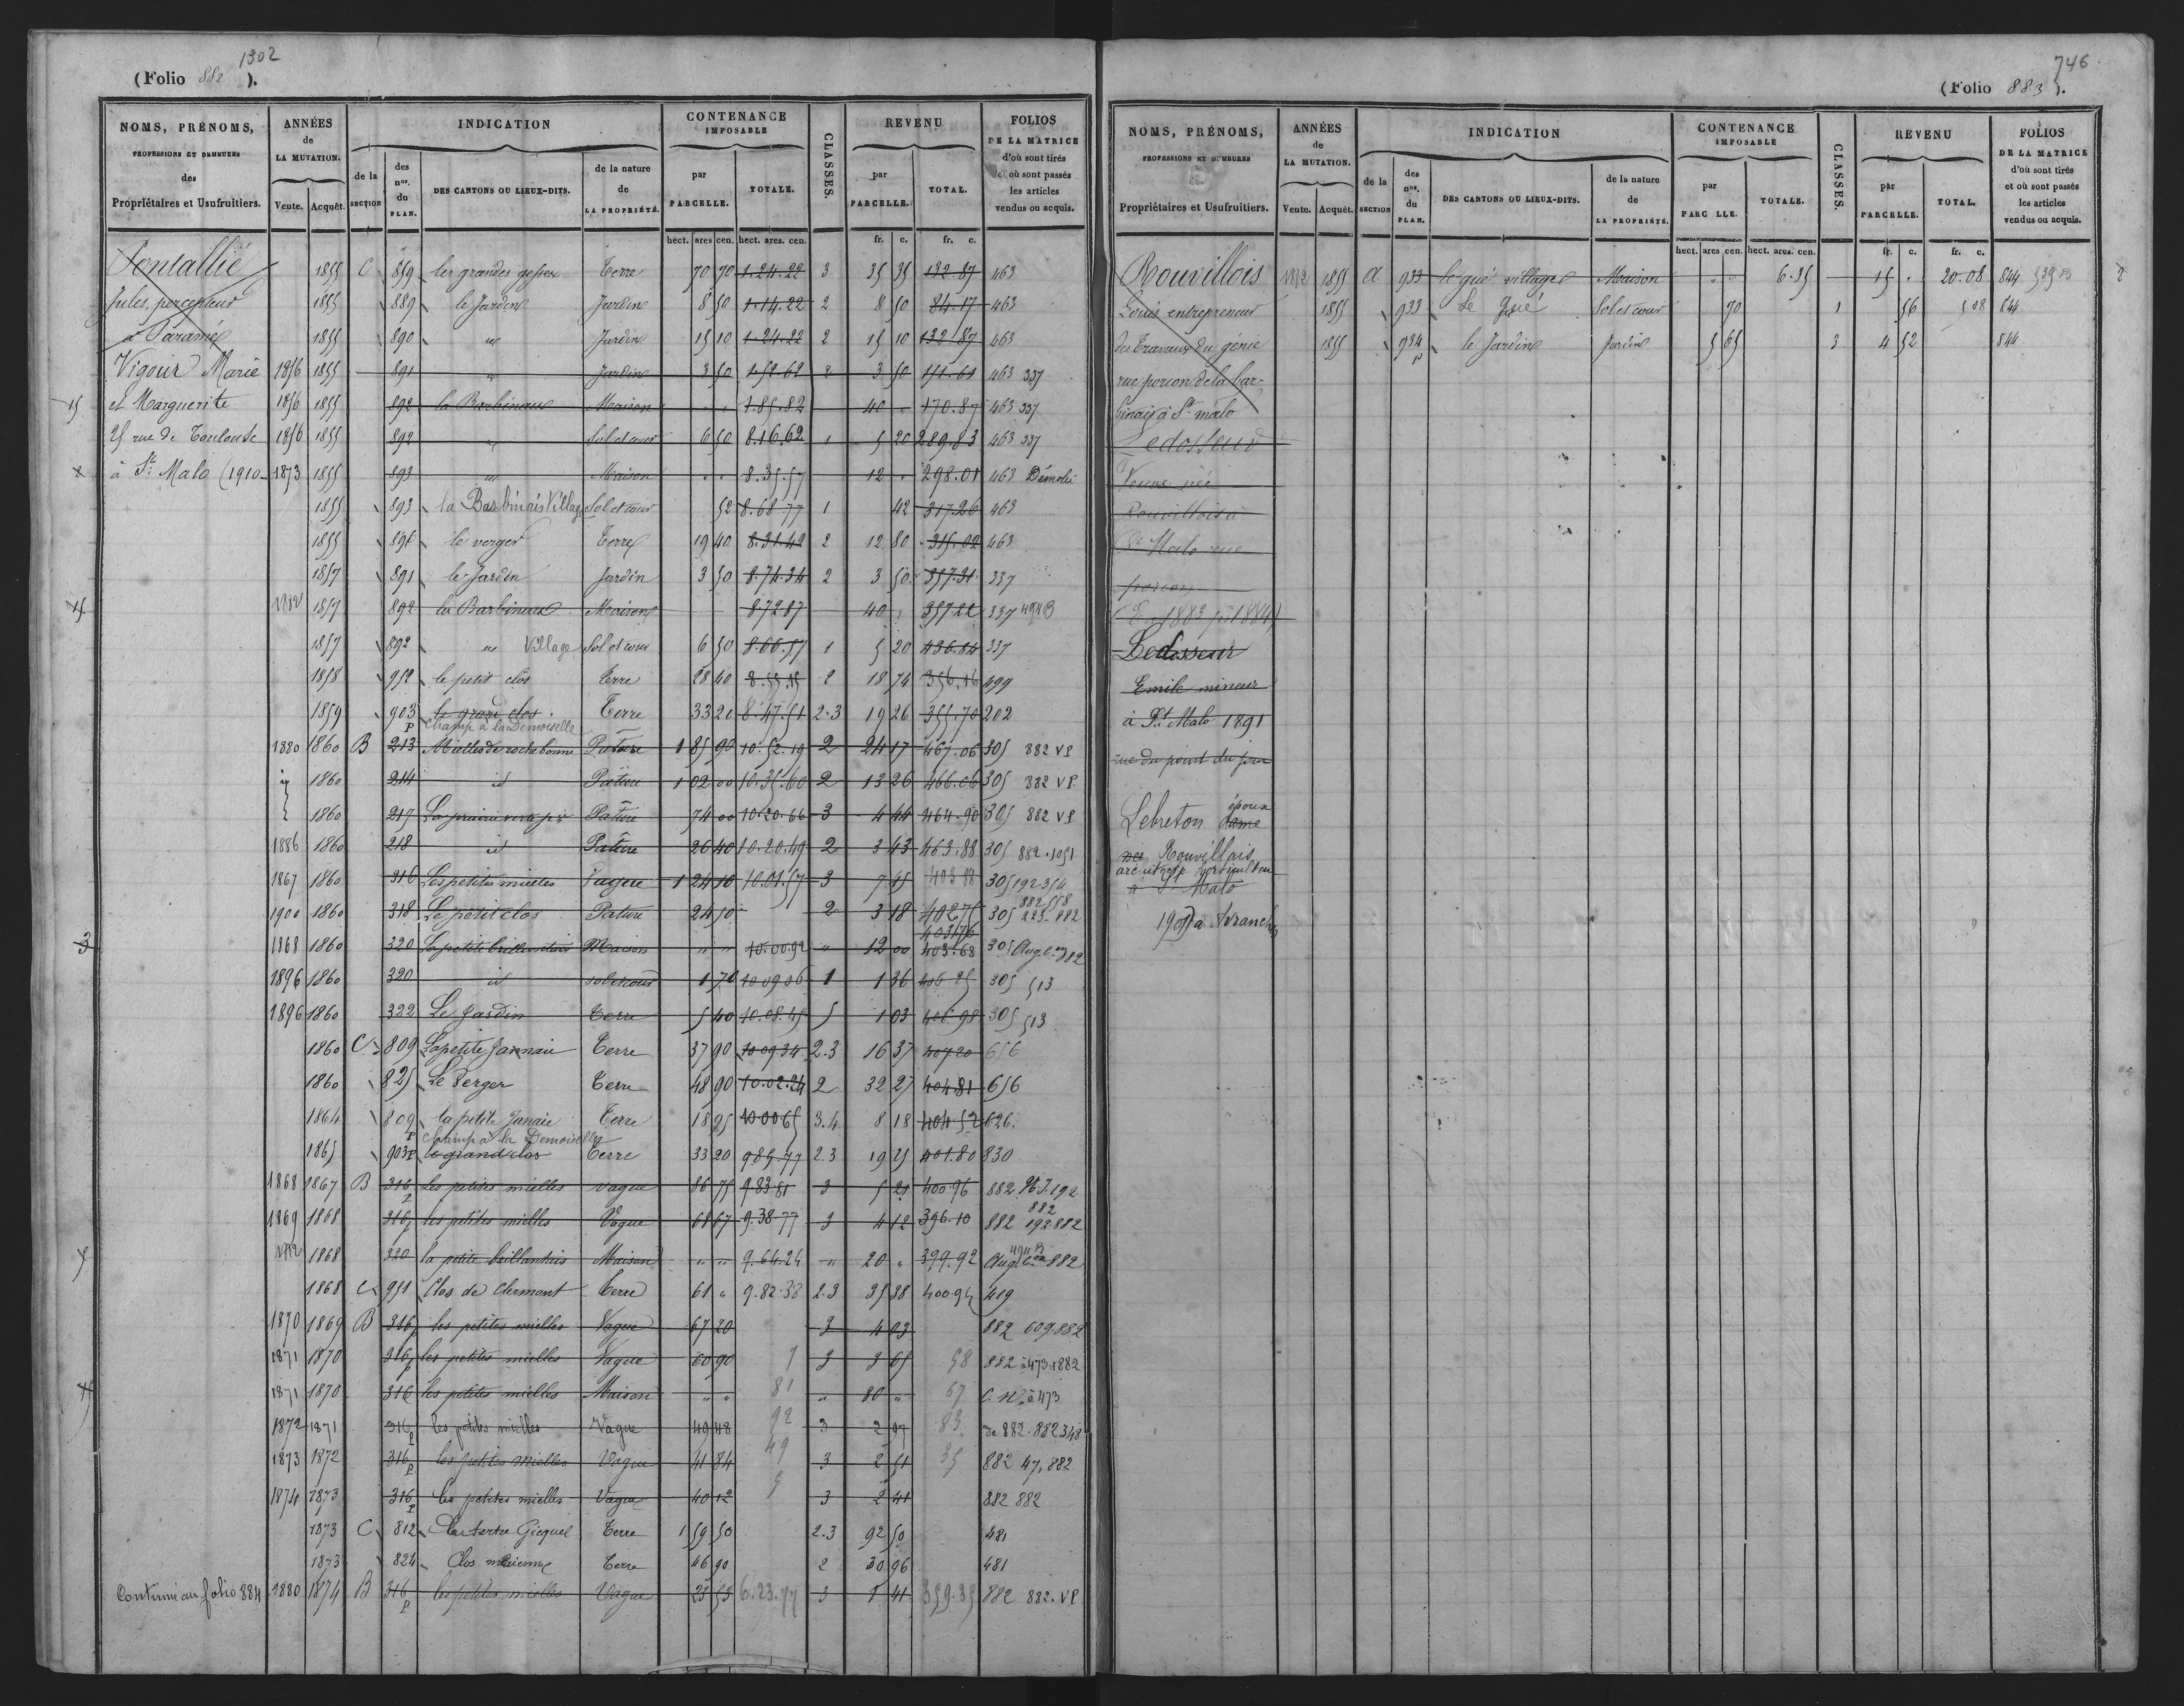 1302
(Folio 882 ).
NOMS, PRÉNOMS, PROFESSIONS ET DEMEURES des Propriétaires et Usufruitiers.
ANNÉES de LA MUTATION. Vente. Acquêt.
INDICATION
de la SECTION
des nos. du PLAN.
DES CANTONS OU LIEUX-DITS.
de la nature de LA PROPRIÉTÉ.
CONTENANCE IMPOSABLE
par PARCELLE. TOTALE.
CLASSES.
REVENU
par PARCELLE. TOTAL.
FOLIOS DE LA MATRICE d'où sont tirés et où sont passés les articles vendus ou acquis.
hect. ares cen. hect. ares. cen. fr. c. fr. c.
Jules, percepteur
à Paramé
Vigour Marie
et Marguerite
25 rue de Toulouse
à St. Malo (1910
1855 C 859 les grandes gesses Terre 70 70 1.24.22 3 35 35 132 87 463
1855 889 le Jardin Jardin 8 50 1.14.22 2 8 50 84.17 463
1855 890 " Jardin 15 10 1.24.22 2 15 10 132 87 463
1856 1855 891 " Jardin 3 50 1.52.62 2 3 50 151.61 463 337
15 1856 1855 892 la Barbinais Maison " " 1.85.82 40 " 170.87 463 337
1856 1855 892 " Sol et cour 6 50 8.16.62 1 5 20 289.83 463 337
2 1873 1855 893 " Maison " " 8.35.57 12 " 298.01 463 Démolie
1855 893 la Barbinais Village Sol et cour 52 8.68 77 1 42 317.26 463
1855 896 le verger Terre 19 40 8.31.42 2 12 80 315.02 463
1857 891 le Jardin Jardin 3 50 8.74.34 2 3 50 357.31 337
1882 1857 892 la Barbinais Maison 8.72 87 40 " 337 494B
1857 892 " Village Sol et cour 6 50 8.66.57 1 5 20 436.84 337
1858 952 le petit clos Terre 28 40 8.55.15 2 18 74 356.16 499
1859 903 p le grand clos Champ à la Demoiselle Terre 33 20 8.47.51 2-3 19 26 355.70 202
1880 1860 B 213 Mielles de roche bonne Pâture 1 85 90 10.52.19 2 24 17 467.06 305 882 VP
id 1860 214 id Pâture 1 02 00 10.35.60 2 13 26 466.06 305 882 VP
1860 217 La prairie verte Pâture 74 00 10.20.66 3 4 44 464.90 305 882 VP
1886 1860 218 id Pâture 26 40 10.20.49 2 3 43 463.88 305 882.1051
1867 1860 316 Les petites mielles Vague 1 24 10 10.01.57 3 7 45 403 88 305 192 354
1900 1860 318 Le petit clos Pature 24 50 2 3 18 402 75 305 882 558 223.882
3 1868 1860 320 La petite brillantais Maison " " 10.00.92 " 12 00 403.76 403.68 305 Aug. con 882
1896 1860 320 id sol et cour 1 70 10 09 06 1 1 36 305 513
1896 1860 322 Le Jardin Terre 5 40 10.08.45 5 1 03 305 513
1860 C 809 La petite Jannaie Terre 37 90 10 09 34 2.3 16 37 407 20 656
1860 825 Le Verger Terre 48 90 10.02.24 2 32 27 404.81 656
1864 809 p la petite Janaie Terre 18 95 10.00 65 3.4 8 18 404 52 626.
1865 903 p le grand clos Champ à la Demoiselle Terre 33 20 9.85.77 2.3 19 25 401.80 830
1868 1867 B 316 p Les petites mielles vague 86 75 9.83 81 3 5 21 400.96 882 96.J.192
1869 1868 316 p les petites mielles Vague 68 67 9.38.77 3 4 12 396.10 882 882 192.882
1882 1868 320 la petite brillantais Maison " " 9.64.24 " 20 " 399.92 494B Aug. con 882
1868 C 951 Clos de Clermont Terre 61 " 9.82.38 2.3 35 38 400.94 419
1870 1869 B 316 p les petites mielles Vague 67 20 3 4 03 882 609.882
1871 1870 316 p les petites mielles Vague 60 90 7 3 3 65 58 882 à 473 882
1871 1870 316 les petites mielles Maison " " 81 " 80 " 67 C.N. à 473
1872 1871 316 p les petites mielles Vague 49 48 92 3 2 97 83 de 882.882 348
1873 1872 316 p les petites mielles Vague 41 84 49 3 2 51 35 882 47, 882
1874 1873 316 p les petites mielles Vague 40 12 5 3 2 41 882 882
1873 C 812 La tertre Gicquel Terre 1 59 50 2.3 92 50 481
1873 824 Clos Terre 46 90 2 30 96 481
Continué au folio 884 1880 1874 B 316 p les petites mielles Vague 23 53 6.23.77 3 1 41 359.35 882 882.VP
746
(Folio 883 ).
NOMS, PRÉNOMS, PROFESSIONS ET DEMEURES des Propriétaires et Usufruitiers.
ANNÉES de LA MUTATION. Vente. Acquêt.
INDICATION
de la SECTION
des nos. du PLAN.
DES CANTONS OU LIEUX-DITS.
de la nature de LA PROPRIÉTÉ.
CONTENANCE IMPOSABLE
par PARC LLE. TOTALE.
CLASSES.
REVENU
par PARCELLE. TOTAL.
FOLIOS DE LA MATRICE d'où sont tirés et où sont passés les articles vendus ou acquis.
hect. ares cen. hect. ares. cen. fr. c. fr. c.
Rouvillois 1882 1855 A 933 le gué village Maison " " 6.35 15 " 20.08 844 539B 2
Louis entrepreneur 1855 933 Le Gué Sol et cour 70 1 56 5 08 844
des travaux du génie 1855 934 p le Jardin Jardin 5 65 3 4 52 844
rue porcon de la bar-
binais à St malo
Ledosseur
Veuve née
Rouvillois à
St Malo rue
porcon
(En 1883 pr 1884)
Ledosseur
Emile mineur
à St. Malo 1891
rue du point du jour
Lebreton époux dame
née Rouvillois
architecte
à St Malo
1907 à Avranches